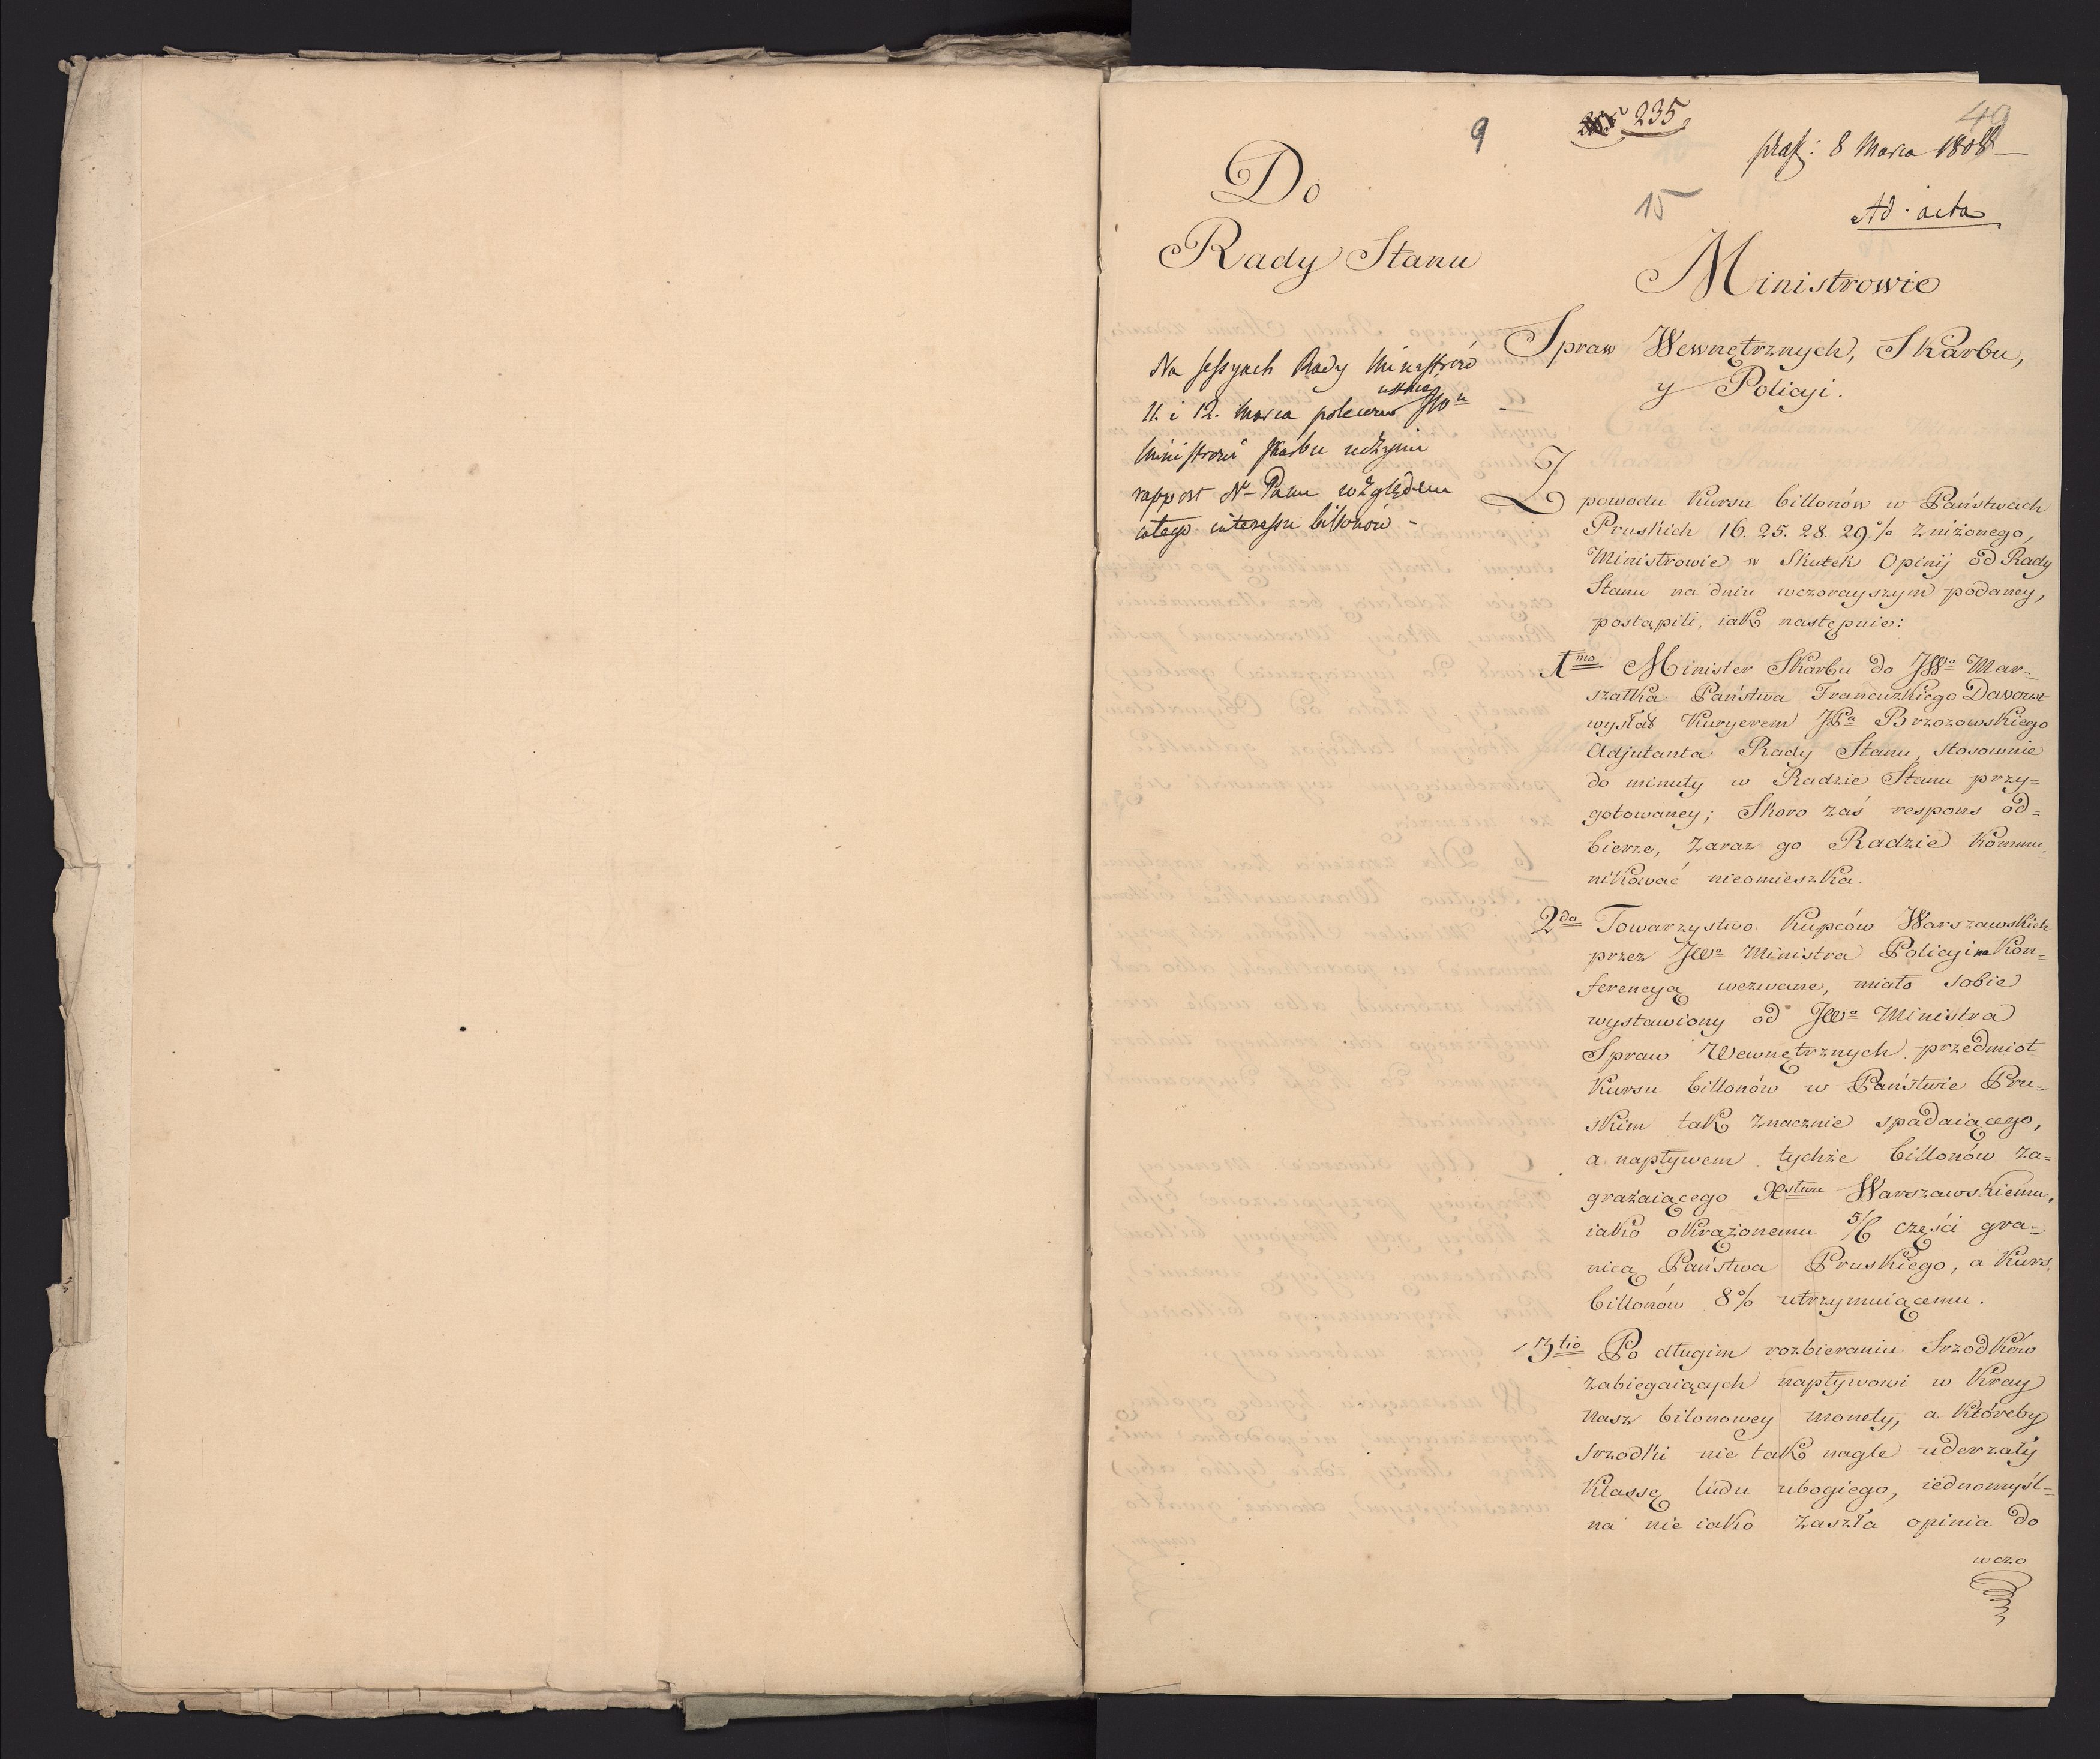 9
235
49
præs: 8 Marca 1808
15
Ad acta
Do
Rady Stanu
Na sessyach Rady Ministrów
ustnie
11. i 12. Marca polecono JWu
Ministrowi Skarbu uczynić
rapport N. Panu względem
całego interessu billonów -
Ministrowie
Spraw Wewnętrznych, Skarbu,
y Policyi.
Z powodu Kursu billonów w Państwach
Pruskich 16. 25. 28. 29. % zniżonego,
Ministrowie w Skutek Opinij od Rady
Stanu na dniu wczorayszym podaney,
postąpili, iak następuie:
1mo Minister Skarbu do JWo Mar=
szałka Państwa Francuzkiego Davoust
wysłał Kuryerem JPa Brzozowskiego
Adjutanta Rady Stanu, stosownie
do minuty w Radzie Stanu przy=
gotowaney; Skoro zaś respons od=
bierze, zaraz go Radzie Kommu=
nikować nieomieszka.
2do Towarzystwo Kupców Warszawskich
przez JWo Ministra Policyi na Kon=
ferencyą wezwane, miało sobie
wystawiony od JWo Ministra
Spraw Wewnętrznych przedmiot
Kursu billonów w Państwie Pru=
skim tak znacznie spadaiącego,
a napływem tychże billonów za=
grażaiącego Xstwu Warszawskiemu,
iako okrążonemu 5/6 części gra=
nicą Państwa Pruskiego, a Kurs
billonów 8% utrzymuiącemu.
3tio Po długim rozbieraniu Srzodków
zabiegaiących napływowi w Kray
nasz bilonowey monety, a któreby
srzodki nie tak nagle uderzały
Klassę ludu ubogiego, iednomyśl=
na nie iako zaszła opinia do
wczo